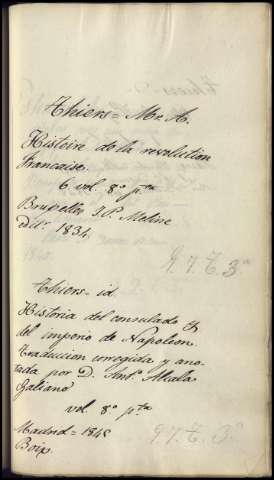 Thiers = Mr. A.
Histoire de la revolution
francaise.
6 vol. 8º pta
Bruxelles J.P. Meline
Edit. 1834
97. T. 3ª
Thiers - id.
Historia del consulado y
del imperio de Napoleon.
Traduccion corregida y ano-
tada por D. Antº Alcala
Galiano
vol. 8º pta
Madrid = 1845
Boix.
97. T. 3ª